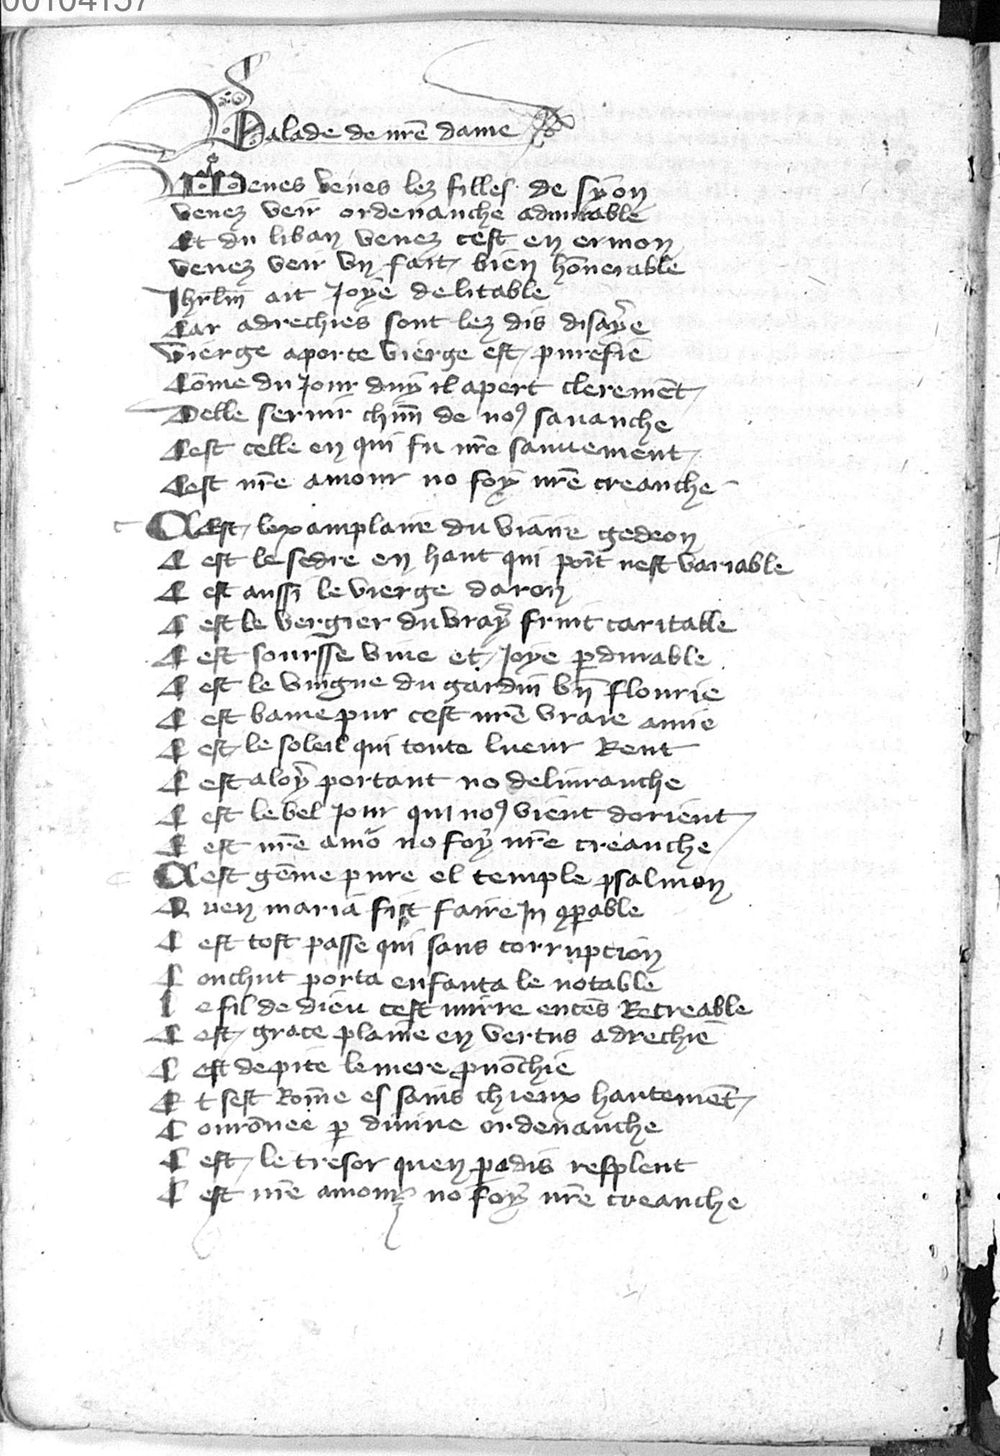 00104137
Balade de nre dame
Venes venes lez filles de syon
venez veir ordenanche admirable
Et du liban venez cest en ermon
venez veir vn fait bien honnerable
Jhrlm ait Joye delitable
Car adrechies sont lez dis disaye
vierge aporte vierge est purefie
Come du Jour duy il apert clerement
Delle seruir chm de no9 sauanche
Cest celle en qui fu nre sauuement
Cest nre amour no foy nre creanche
Cest lexamplaire du viaire gedeon
C est le sedre en haut qui point nest variable
C est aussi le vierge daron
C est le vergier du vray fruit caritable
C est sourse viue et Joye pdurable
C est le vingne du gardin bn flourie
C est bame pur cest nre vraie amie
C est le soleil qui toute lueur Rent
C est aloy portant no deliuranche
C est le bel Jour qui no9 vient dorient
C est nre amo no foy nre creanche
Cest geme pure el temple psalmon
Q uen maria fist faire In qpable
C est tost passe qui sans corrupcion
C onchut porta enfanta le notable
L e fil de dieu cest mirre encens Retreable
C est grace plaine en vertus adrechie
C est de pite le mere pnochie
E t sest Rome es sains chieux hautement
C ouronee p diuine ordenanche
C est le tresor quen padis resplent
C est nre amour no foy nre creanche